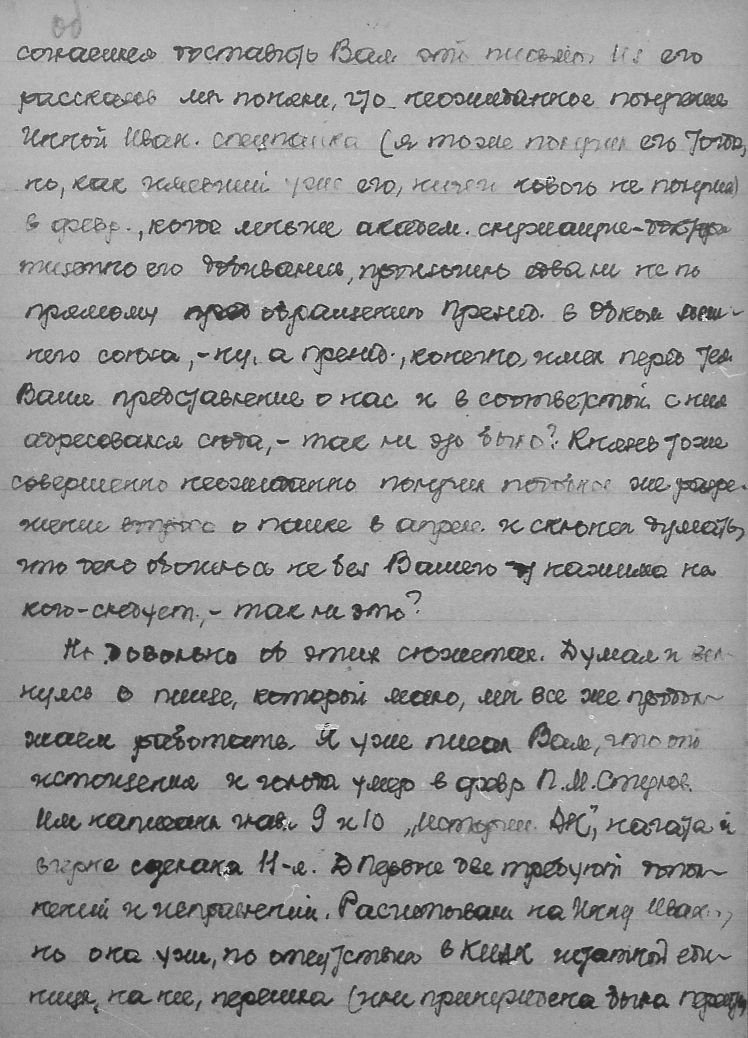 об
согласился доставить Вам это письмо. Из его
рассказов мы поняли, что неожиданное получение
Инной Иван. спецпайка (я тоже получил его тогда,
но, как имевший уже его, ничего нового не получил)
в февр., когда меньше академ. служащие-
его добивались, произошло едва ли не по
прямому обращению Презид. в обком
него союза, – ну, а Презид., конечно, имел перед тем
Ваше представление о нас и в соответствии с ним
адресовался сюда, – так ли это было? Князев тоже
совершенно неожиданно получил подобное же
жение о пайке в апреле и склонен думать,
что дело обошлось не без Вашего нажима на
кого-следует, – так ли это?
Но довольно об этих сюжетах. Думал и
нулся о пище, которой мало, мы все же продол-
жаем работать. Я уже писал Вам, что от
истощения и голода умер в февр П. М. Стулов.
Им написаны глав. 9 и 10 „Истории АН", начата и
вчерне сделана 11-я. Первые две требуют допол-
нений и исправлений. Рассчитывали на Инну Иван.,
но она уже, по отсутствию в КИАН штатной еди-
ницы на нее, перешла (или принуждена была перейти